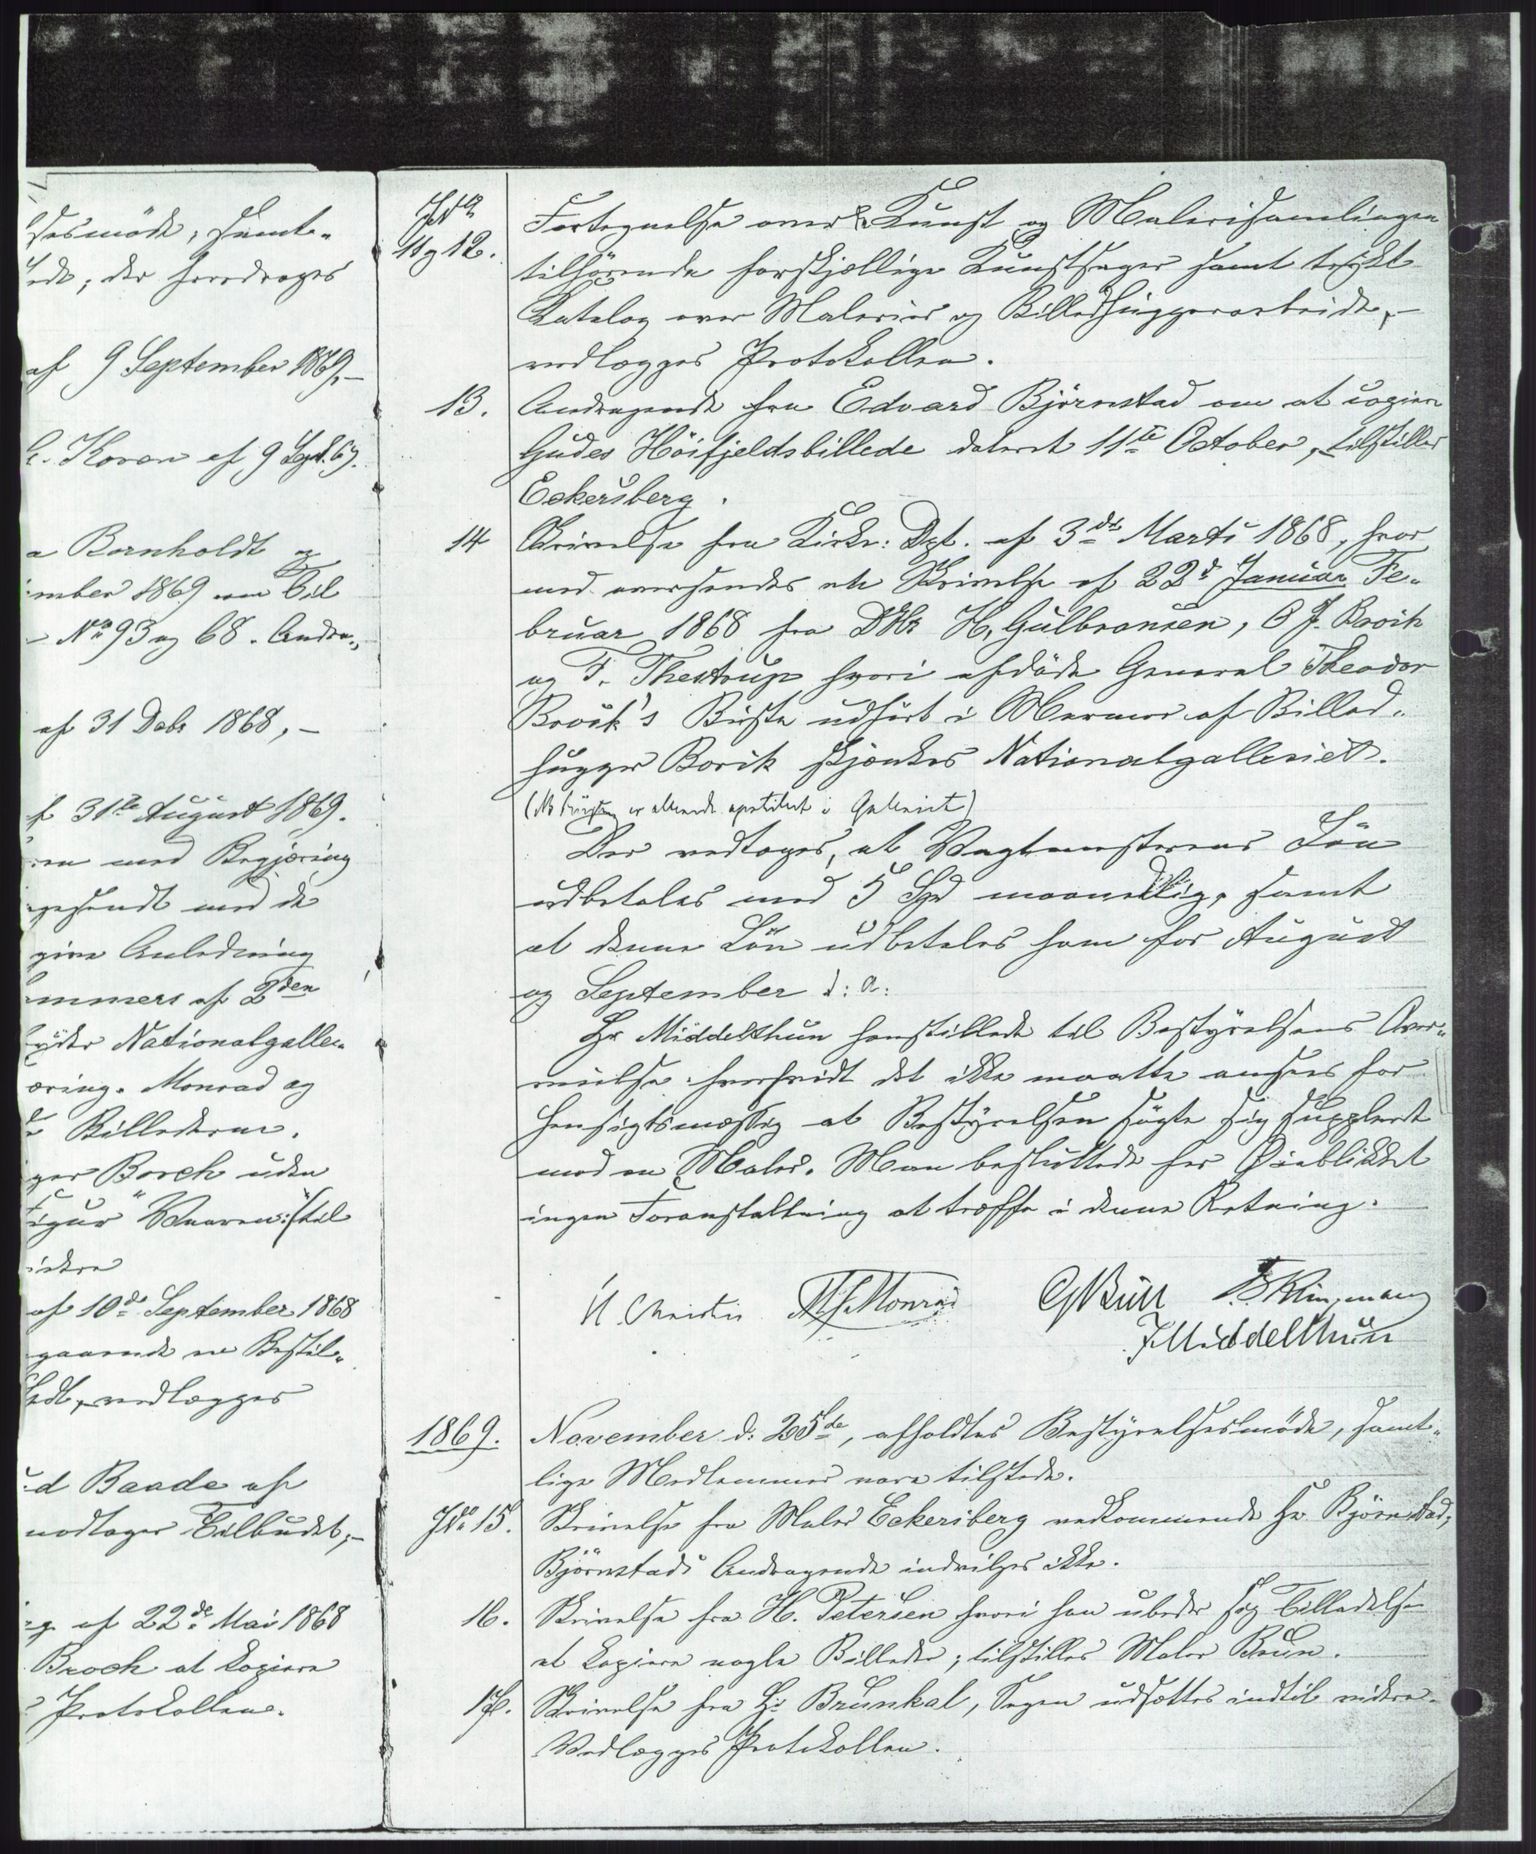 sesmöde, samt-
ede; der foredroges
af 9 September 1869,-
C. Koren af 9 Sept. 69.
a Bornholdt og
ember 1869 om Til
- No 93 og 68. Andra-
af 31 Debr 1868,-
f 31te August 1869.
ren med Begjæring
gesendt med de
give Anledning
ommers af 2den
yder Nationalgalle-
æring. Monrad og
Billederne.
ger Borch uden
Figur "Vaaren" til
videre
af 10de September 1868
gaaende en Bestil-
vedlægges
d Baade af
modtager Tilbudet,-
af 22de Mai 1868
Broch at kopiere
Protokollen.
JNo
11 og 12. Fortegnelse over Kunst og Malerisamlingen
tilhörende forskjællige Kunstsager samt trykt
Katalog over Malerier og Billedhuggerarbeide,-
vedlægges Protokollen.
13. Andragende fra Edvard Björnstad om at copiere
Gudes Höifjeldsbillede dateret 11te October, tilstilles
Eckersberg.
14 Skrivelse fra Kirke: Dpt. af 3die Marts 1868, hvor
med oversendes en Skrivelse af 22d Januar Fe-
bruar 1868 fra DHr H. Gulbransen, O J. Broch
og F. Thestrup hvori afdöde General Theodor
Broch's Büste udfört i Marmor af Billed-
hugger Borch skjænkes Nationalgalleriet.
(NB Büsten er allerede opstillet i Galleriet)
Der vedtoges, at Vagtmesterens Lön
udbetales med 5 Spd maanedlig, samt
at denne Lön udbetales ham for August
og September d: A:
Hr Middelthun henstillede til Bestyrelsens Over-
veielse: hvorvidt det ikke maatte ansees for
hensigtsmæssig at Bestyrelsen sögte sig suppleret
med en Maler. Man besluttede for Öieblikket
ingen Foranstaltning at træffe i denne Retning.
H Christie MJMonrad GBull F Klingmann
JMiddelthun
1869. November d: 25de, afholdtes Bestyrelsesmöde, samt-
lige Medlemmer vare tilstede.
JNo 15. Skrivelse fra Maler Eckersberg vedkommende Hr Björnstad;
Björnstads Andragende indvilges ikke.
16. Skrivelse fra H. Petersen hvori han udbeder sig Tilladelse
at kopiere nogle Billeder; tilstilles Maler Brun.
17. Skrivelse fra Hr Brunkal, Sagen udsættes indtil videre.
Vedlægges Protokollen.